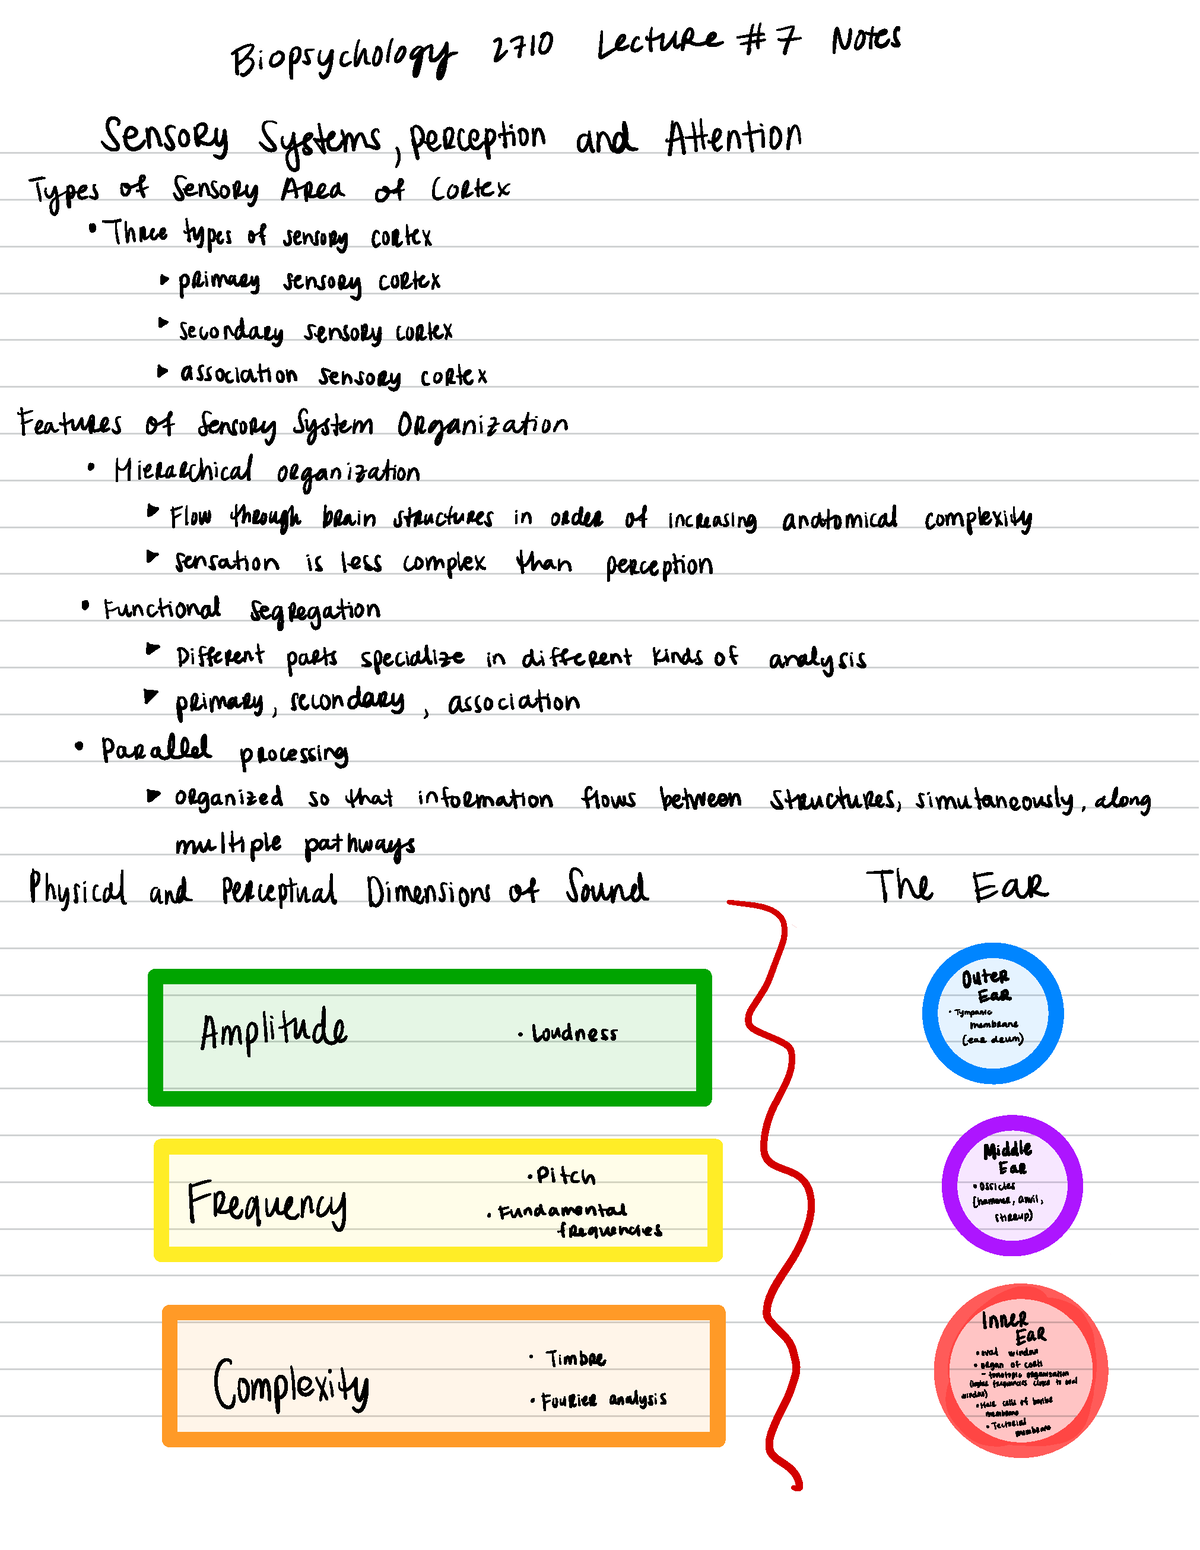 Biopsychology 2710 Lecture #7 Notes
Sensory Systems, perception and Attention
Types of Sensory Area of Cortex
• Three types of sensory cortex
▸ primary sensory cortex
▸ secondary sensory cortex
▸ association sensory cortex
Features of Sensory System Organization
• Hierarchical organization
▸ Flow through brain structures in order of increasing anatomical complexity
▸ sensation is less complex than perception
• Functional segregation
▸ Different parts specialize in different kinds of analysis
▸ primary, secondary, association
• Parallel processing
▸ organized so that information flows between structures, simutaneously, along
multiple pathways
Physical and Perceptual Dimensions of Sound
Amplitude
• Loudness
Frequency
• Pitch
• Fundamental
frequencies
Complexity
• Timbre
• Fourier analysis
The Ear
Outer
Ear
• Tympanic
membrane
(ear drum)
Middle
Ear
• Ossicles
(hammer, anvil,
stirrup)
Inner
Ear
• oval window
• organ of corti
- tonotopic organization
(higher frequencies closer to oval
window)
• Hair cells of basilar
membrane
• Tectorial
membrane